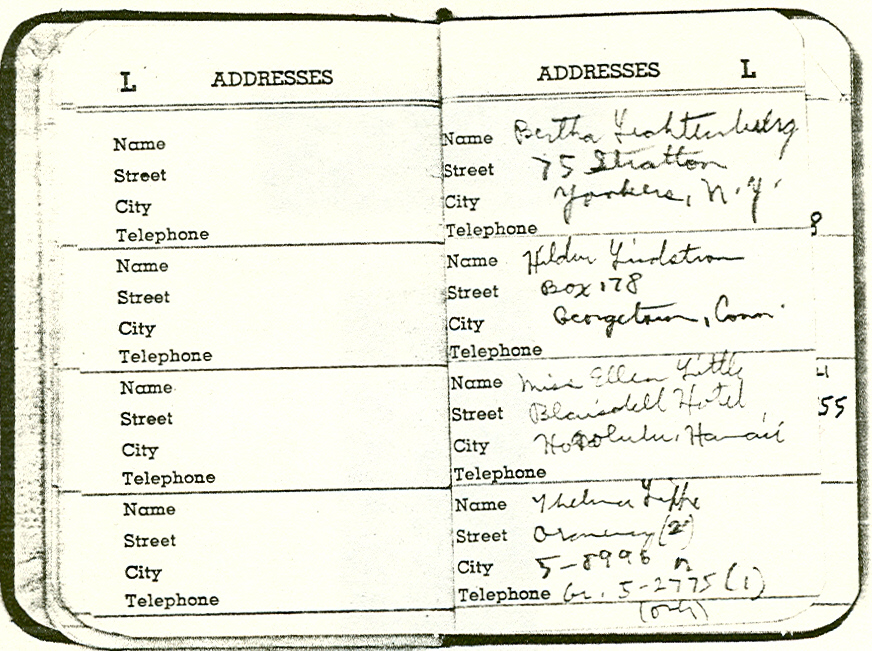 L ADDRESSES
Name
Street
City
Telephone
Name
Street
City
Telephone
Name
Street
City
Telephone
Name
Street
City
Telephone
ADDRESSES L
Name Bertha
Street 75 Stratton
City Yonkers, N.Y.
Telephone
8
Name Hildur Lindstrom
Street Box 178
City Georgetown, Conn.
Telephone
Name Miss Ellen Little
Street Blaisdell Hotel
55
City Honolulu, Hawaii
Telephone
Name Thelma
Street (2)
City 5-8996
Telephone Gr. 5-2775 (1)
(only)